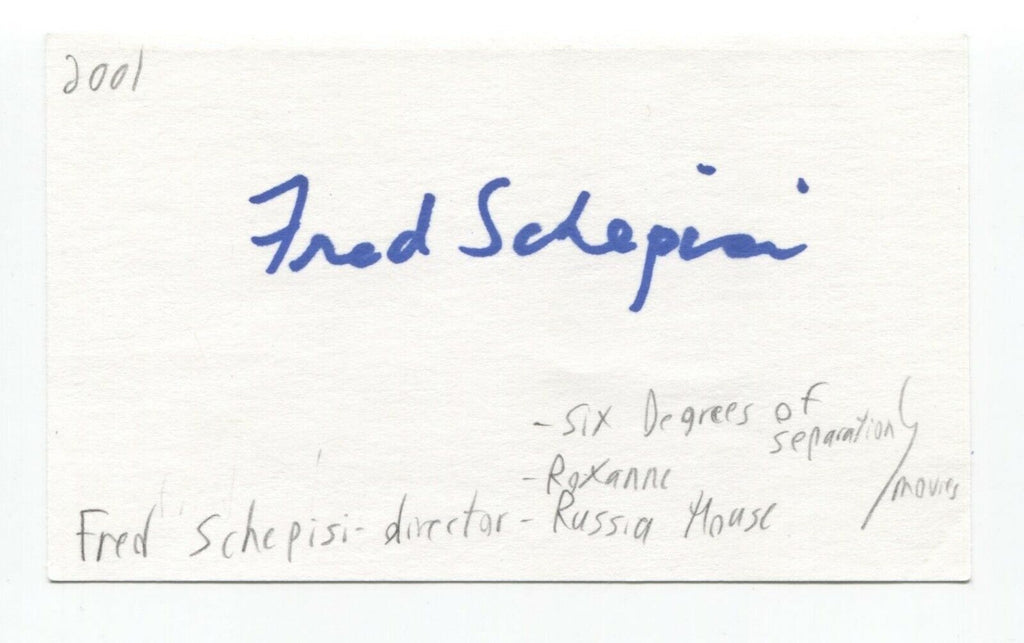 2001
Fred Schepisi
- Six Degrees of
separation
- Roxanne
movies
Fred Schepisi - director - Russia House